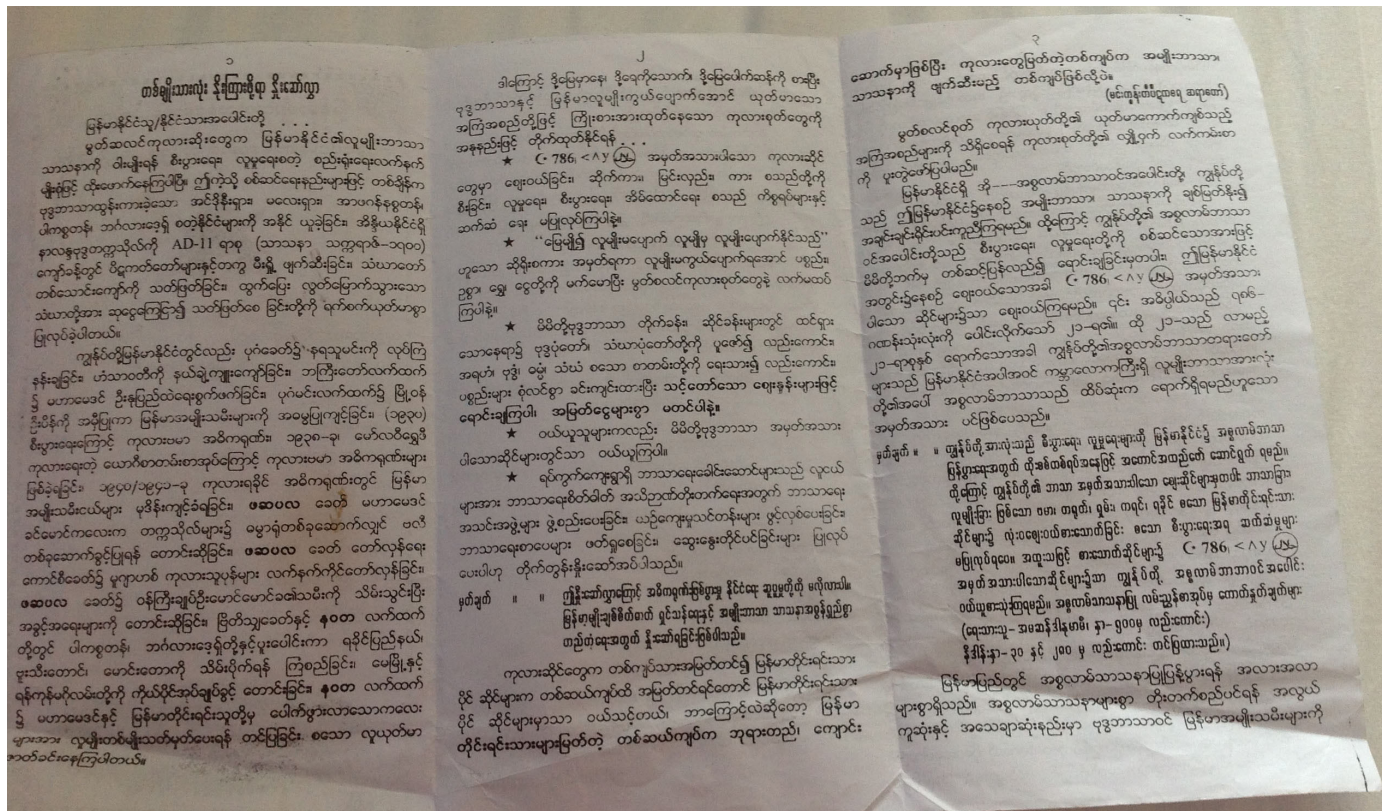 ၁
တစ်မျိုးသားလုံး နိုးကြားဖို့ရာ နှိုးဆော်လွှာ
မြန်မာနိုင်ငံသူ/နိုင်ငံသားအပေါင်းတို့ . . . .
မွတ်ဆလင်ကုလားဆိုးတွေက မြန်မာနိုင်ငံ၏လူမျိုးဘာသာ
သာသနာကို ဝါးမျိုးရန် စီးပွားရေး၊ လူမှုရေးစတဲ့ စည်းရုံးရေးလက်နက်
မျိုးစုံဖြင့် ထိုးဖောက်နေကြပါပြီ။ ဤကဲ့သို့ စစ်ဆင်ရေးနည်းများဖြင့် တစ်ချိန်က
ဗုဒ္ဓဘာသာထွန်းကားခဲ့သော အင်ဒိုနီးရှား၊ မလေးရှား၊ အာဖဂန်နစ္စတန်၊
ပါကစ္စတန်၊ ဘင်္ဂလားဒေ့ရှ် စတဲ့နိုင်ငံများကို အနိုင် ယူခဲ့ခြင်း၊ အိန္ဒိယနိုင်ငံရှိ
နာလန္ဒဗုဒ္ဓတက္ကသိုလ်ကို AD-11 ရာစု (သာသနာ သက္ကရာဇ်-၁၇၀၀)
ကျော်ခန့်တွင် ပိဋကတ်တော်များနှင့်တကွ မီးရှို့ ဖျက်ဆီးခြင်း၊ သံဃာတော်
တစ်သောင်းကျော်ကို သတ်ဖြတ်ခြင်း၊ ထွက်ပြေး လွတ်မြောက်သွားသော
သံဃာတို့အား ဆုငွေကြေငြာ၍ သတ်ဖြတ်စေ ခြင်းတို့ကို ရက်စက်ယုတ်မာစွာ
ပြုလုပ်ခဲ့ပါတယ်။
ကျွန်ုပ်တို့မြန်မာနိုင်ငံတွင်လည်း ပုဂံခေတ်၌ နရသူမင်းကို လုပ်ကြံ
နန်းချခြင်း၊ ဟံသာဝတီကို နယ်ချဲ့ကျူးကျော်ခြင်း၊ ဘကြီးတော်လက်ထက်
၌ မဟာမေဒင် ဦးနုပြည်ထဲရေးစွက်ဖက်ခြင်း၊ ပုဂံမင်းလက်ထက်၌ မြို့ဝန်
ဦးပိန်ကို အမှီပြုကာ မြန်မာအမျိုးသမီးများကို အဓမ္မပြုကျင့်ခြင်း၊ (၁၉၃၀)
စီးပွားရေးကြောင့် ကုလားဗမာ အဓိကရုဏ်း၊ ၁၉၃၈-ခု၊ မော်လဝီရွှေဒီ
ကုလားရေးတဲ့ ယောဂီစာတမ်းစာအုပ်ကြောင့် ကုလားဗမာ အဓိကရုဏ်းများ
ဖြစ်ခဲ့ရခြင်း၊ ၁၉၄၀/၁၉၄၁-ခု ကုလားရခိုင် အဓိကရုဏ်းတွင် မြန်မာ
အမျိုးသမီးငယ်များ မုဒိန်းကျင့်ခံရခြင်း၊ ဖဆပလ ခေတ် မဟာမေဒင်
ခင်မောင်ကလေးက တက္ကသိုလ်များ၌ ဓမ္မာရုံတစ်ခုဆောက်လျှင် ဗလီ
တစ်ခုဆောက်ခွင့်ပြုရန် တောင်းဆိုခြင်း၊ ဖဆပလ ခေတ် တော်လှန်ရေး
ကောင်စီခေတ်၌ မူဂျာဟစ် ကုလားသူပုန်များ လက်နက်ကိုင်တော်လှန်ခြင်း၊
ဖဆပလ ခေတ်၌ ဝန်ကြီးချုပ်ဦးမောင်မောင်ခ၏သမီးကို သိမ်းသွင်းပြီး
အခွင့်အရေးများကို တောင်းဆိုခြင်း၊ ဗြိတိသျှခေတ်နှင့် နဝတ လက်ထက်
တို့တွင် ပါကစ္စတန်၊ ဘင်္ဂလားဒေ့ရှ်တို့နှင့်ပူးပေါင်းကာ ရခိုင်ပြည်နယ်၊
ဗူးသီးတောင်၊ မောင်းတောကို သိမ်းပိုက်ရန် ကြံစည်ခြင်း၊ မေမြို့နှင့်
ရန်ကုန်မဂိုလမ်းတို့ကို ကိုယ်ပိုင်အုပ်ချုပ်ခွင့် တောင်းခြင်း၊ နဝတ လက်ထက်
၌ မဟာမေဒင်နှင့် မြန်မာတိုင်းရင်းသူတို့မှ ပေါက်ဖွားလာသောကလေး
များအား လူမျိုးတစ်မျိုးသတ်မှတ်ပေးရန် တင်ပြခြင်း၊ စသော လူယုတ်မာ
ဇာတ်ခင်းနေကြပါတယ်။
၂
ဒါကြောင့် ဒို့မြေမှာနေ၊ ဒို့ရေကိုသောက်၊ ဒို့မြေပေါက်ဆန်ကို စားပြီး
ဗုဒ္ဓဘာသာနှင့် မြန်မာလူမျိုးကွယ်ပျောက်အောင် ယုတ်မာသော
အကြံအစည်တို့ဖြင့် ကြိုးစားအားထုတ်နေသော ကုလားစုတ်တွေကို
အနုနည်းဖြင့် တိုက်ထုတ်နိုင်ရန် . . . .
★ ☪ 786, < ^ y အမှတ်အသားပါသော ကုလားဆိုင်
တွေမှာ ဈေးဝယ်ခြင်း၊ ဆိုက်ကား၊ မြင်းလှည်း၊ ကား စသည်တို့ကို
စီးခြင်း၊ လူမှုရေး၊ စီးပွားရေး၊ အိမ်ထောင်ရေး စသည် ကိစ္စရပ်များနှင့်
ဆက်ဆံ ရေး မပြုလုပ်ကြပါနဲ့။
★ “မြေမျို၍ လူမျိုးမပျောက် လူမျိုမှ လူမျိုးပျောက်နိုင်သည်”
ဟူသော ဆိုရိုးစကား အမှတ်ရကာ လူမျိုးမကွယ်ပျောက်ရအောင် ပစ္စည်း၊
ဥစ္စာ၊ ရွှေ၊ ငွေတို့ကို မက်မောပြီး မွတ်စလင်ကုလားစုတ်တွေနဲ့ လက်မထပ်
ကြပါနဲ့။
★ မိမိတို့ဗုဒ္ဓဘာသာ တိုက်ခန်း၊ ဆိုင်ခန်းများတွင် ထင်ရှား
သောနေရာ၌ ဗုဒ္ဓပုံတော်၊ သံဃာပုံတော်တို့ကို ပူဇော်၍ လည်းကောင်း၊
အရဟံ၊ ဗုဒ္ဓံ၊ ဓမ္မံ၊ သံဃံ စသော စာတမ်းတို့ကို ရေးသား၍ လည်းကောင်း၊
ပစ္စည်းများ စုံလင်စွာ ခင်းကျင်းထားပြီး သင့်တော်သော ဈေးနှုန်းများဖြင့်
ရောင်းချကြပါ၊ အမြတ်ငွေများစွာ မတင်ပါနဲ့။
★ ဝယ်ယူသူများကလည်း မိမိတို့ဗုဒ္ဓဘာသာ အမှတ်အသား
ပါသောဆိုင်များတွင်သာ ဝယ်ယူကြပါ။
★ ရပ်ကွက်ကျေးရွာရှိ ဘာသာရေးခေါင်းဆောင်များသည် လူငယ်
များအား ဘာသာရေးစိတ်ဓါတ် အသိဉာဏ်တိုးတက်ရေးအတွက် ဘာသာရေး
အသင်းအဖွဲ့များ ဖွဲ့စည်းပေးခြင်း၊ ယဉ်ကျေးမှုသင်တန်းများ ဖွင့်လှစ်ပေးခြင်း၊
ဘာသာရေးစာပေများ ဖတ်ရှုစေခြင်း၊ ဆွေးနွေးတိုင်ပင်ခြင်းများ ပြုလုပ်
ပေးပါဟု တိုက်တွန်းနှိုးဆော်အပ်ပါသည်။
မှတ်ချက် ။ ။ ဤနှိုးဆော်လွှာကြောင့် အဓိကရုဏ်းဖြစ်ပွားမှု၊ နိုင်ငံရေး ဆူပူမှုတို့ကို မလိုလားပါ။
မြန်မာမျိုးချစ်စိတ်ဓာတ် ရှင်သန်ရေးနှင့် အမျိုးဘာသာ သာသနာအဓွန့်ရှည်စွာ
တည်တံ့ရေးအတွက် နှိုးဆော်ရခြင်းဖြစ်ပါသည်။
ကုလားဆိုင်တွေက တစ်ကျပ်သားအမြတ်တင်၍ မြန်မာတိုင်းရင်းသား
ပိုင် ဆိုင်များက တစ်ဆယ်ကျပ်ထိ အမြတ်တင်ရင်တောင် မြန်မာတိုင်းရင်းသား
ပိုင် ဆိုင်များမှာသာ ဝယ်သင့်တယ်၊ ဘာကြောင့်လဲဆိုတော့ မြန်မာ
တိုင်းရင်းသားများမြတ်တဲ့ တစ်ဆယ်ကျပ်က ဘုရားတည်၊ ကျောင်း
၃
ဆောက်မှာဖြစ်ပြီး ကုလားတွေမြတ်တဲ့တစ်ကျပ်က အမျိုးဘာသာ၊
သာသနာကို ဖျက်ဆီးမည့် တစ်ကျပ်ဖြစ်လို့ပဲ။
(မင်းကွန်းတိပိဋကဓရ ဆရာတော်)
မွတ်စလင်စုတ် ကုလားယုတ်တို့၏ ယုတ်မာကောက်ကျစ်သည့်
အကြံအစည်များကို သိရှိစေရန် ကုလားစုတ်တို့၏ လျှို့ဝှက် လက်ကမ်းစာ
ကို ပူးတွဲဖော်ပြပါမည်။
မြန်မာနိုင်ငံရှိ အို----အစ္စလာမ်ဘာသာဝင်အပေါင်းတို့၊ ကျွန်ုပ်တို့
သည် ဤမြန်မာနိုင်ငံ၌နေစဉ် အမျိုးဘာသာ၊ သာသနာကို ချစ်မြတ်နိုး၍
အချင်းချင်းရိုင်းပင်းကူညီကြရမည်။ ထို့ကြောင့် ကျွန်ုပ်တို့၏ အစ္စလာမ်ဘာသာ
ဝင်အပေါင်းတို့သည် စီးပွားရေး၊ လူမှုရေးတို့ကို စစ်ဆင်သောအားဖြင့်
မိမိတို့ဘက်မှ တစ်ဆင့်ပြန်လည်၍ ရောင်းချခြင်းမှတပါး၊ ဤမြန်မာနိုင်ငံ
အတွင်း၌နေစဉ် ဈေးဝယ်သောအခါ ☪ 786, < ^ y အမှတ်အသား
ပါသော ဆိုင်များ၌သာ ဈေးဝယ်ကြရမည်။ ၎င်း အဓိပ္ပါယ်သည် ၇၈၆-
ဂဏန်းသုံးလုံးကို ပေါင်းလိုက်သော် ၂၁-ရ၏။ ထို ၂၁-သည် လာမည့်
၂၁-ရာစုနှစ် ရောက်သောအခါ ကျွန်ုပ်တို့၏အစ္စလာမ်ဘာသာတရားတော်
များသည် မြန်မာနိုင်ငံအပါအဝင် ကမ္ဘာလောကကြီးရှိ လူမျိုးဘာသာအားလုံး
တို့၏အပေါ် အစ္စလာမ်ဘာသာသည် ထိပ်ဆုံးက ရောက်ရှိရမည်ဟူသော
အမှတ်အသား ပင်ဖြစ်ပေသည်။
မှတ်ချက် ။ ။ ကျွန်ုပ်တို့အားလုံးသည် စီးပွားရေး၊ လူမှုရေးများကို မြန်မာနိုင်ငံ၌ အစ္စလာမ်ဘာသာ
ပြန့်ပွားရေးအတွက် ထိုးစစ်တစ်ရပ်အနေဖြင့် အကောင်အထည်ဖော် ဆောင်ရွက် ရမည်။
ထို့ကြောင့် ကျွန်ုပ်တို့၏ ဘာသာ အမှတ်အသားပါသော ဈေးဆိုင်များမှတပါး ဘာသာခြား၊
လူမျိုးခြား ဖြစ်သော ဗမာ၊ တရုတ်၊ ရှမ်း၊ ကရင်၊ ရခိုင် စသော မြန်မာတိုင်းရင်းသား
ဆိုင်များ၌ လုံးဝဈေးဝယ်စားသောက်ခြင်း စသော စီးပွားရေးအရ ဆက်ဆံမှုများ
မပြုလုပ်ရပေ။ အထူးသဖြင့် စားသောက်ဆိုင်များ၌ ☪ 786, < ^ y
အမှတ်အသားပါသောဆိုင်များ၌သာ ကျွန်ုပ်တို့ အစ္စလာမ်ဘာသာဝင်အပေါင်း
ဝယ်ယူစားသုံးကြရမည်။ အစ္စလာမ်သာသနာပြု လမ်းညွှန်စာအုပ်မှ ကောက်နှုတ်ချက်များ
(ရေးသားသူ- အမဆန်ဒါနုမာမီ၊ နှာ- ၅၀၀မှ လည်းကောင်း)
နိဒါန်း-နှာ- ၃၀ နှင့် ၂၈၀ မှ လည်းကောင်း တင်ပြထားသည်။)
မြန်မာပြည်တွင် အစ္စလာမ်သာသနာပြုပြန့်ပွားရန် အလားအလာ
များစွာရှိသည်။ အစ္စလာမ်သာသနာများစွာ တိုးတက်စည်ပင်ရန် အလွယ်
ကူဆုံးနှင့် အသေချာဆုံးနည်းမှာ ဗုဒ္ဓဘာသာဝင် မြန်မာအမျိုးသမီးများကို